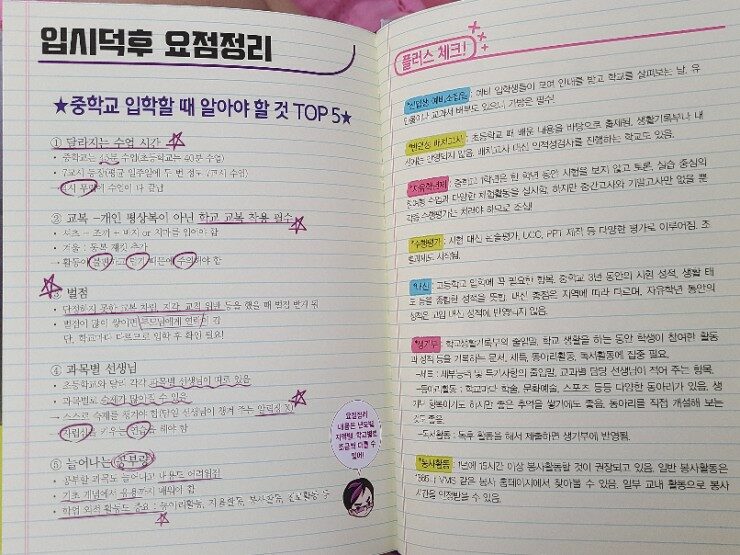 입시덕후 요점정리
★중학교 입학할 때 알아야 할 것 TOP 5★
① 달라지는 수업 시간
• 중학교는 45분 수업(초등학교는 40분 수업)
• 7교시 등장(평균 일주일에 두 번 정도 7교시 수업)
수업이 다 끝남
② 교복 -개인 평상복이 아닌 학교 교복 착용 필수
• 셔츠 - 조끼 + 바지 or 치마를 입어야 함
• 겨울 : 동복 재킷 추가
→ 활동이 불편하고 덥기 때문에 주의해야 함
③ 벌점
• 단정하지 못한 교복 차림, 지각, 교칙 위반 등을 했을 때 벌점 받게 됨
• 벌점이 많이 쌓이면 부모님에게 연락이 감
단, 학교마다 다르므로 입학 후 확인 필요!
④ 과목별 선생님
• 초등학교와 달리 각각 과목별 선생님이 따로 있음
• 과목별로 숙제가 많아질 수 있음
→ 스스로 숙제를 챙겨야 함(담임 선생님이 챙겨 주는 알림장 X)
자립심을 키우는 연습을 해야 함
⑤ 늘어나는 공부량
• 공부할 과목도 늘어나고 내용도 어려워짐
• 기초 개념에서 응용까지 배워야 함
• 학업 외적 활동도 중요 : 동아리활동, 자율활동, 봉사활동, 진로활동 등
요점정리
내용은 난이도
지역별, 학교별로
조금씩 다를 수
있어!
플러스 체크!
*신입생 예비소집일 : 예비 입학생들이 모여 안내를 받고 학교를 살펴보는 날. 유
인물이나 교과서 배부도 있으니 가방은 필수!
*반편성 배치고사 : 초등학교 때 배운 내용을 바탕으로 출제됨. 생활기록부나 내
신에는 반영되지 않음. 배치고사 대신 인적성검사를 진행하는 학교도 있음.
*자유학년제 : 중학교 1학년은 한 학년 동안 시험을 보지 않고 토론, 실습 중심의
참여형 수업과 다양한 체험활동을 실시함. 하지만 중간고사와 기말고사만 없을 뿐
각종 수행평가는 치러야 하므로 조심!
*수행평가 : 시험 대신 논술평가, UCC, PPT 제작 등 다양한 평가로 이루어짐. 조
별과제도 시작됨.
*내신 : 고등학교 입학에 꼭 필요한 항목. 중학교 3년 동안의 시험 성적, 생활 태
도 등을 종합한 성적을 뜻함. 내신 총점은 지역에 따라 다르며, 자유학년 동안의
성적은 고입 내신 성적에 반영되지 않음.
*생기부 : 학교생활기록부의 줄임말. 학교 생활을 하는 동안 학생이 참여한 활동
과 성적 등을 기록하는 문서. 세특, 동아리활동, 독서활동에 집중 필요.
-세특 : 세부능력 및 특기사항의 줄임말. 교과별 담당 선생님이 적어 주는 항목.
-동아리활동 : 학교마다 학술, 문화예술, 스포츠 등등 다양한 동아리가 있음. 생
기부 항목이기도 하지만 좋은 추억을 쌓기에도 좋음. 동아리를 직접 개설해 보는
것도 좋음.
-독서활동 : 독후 활동을 해서 제출하면 생기부에 반영됨.
*봉사활동 : 1년에 15시간 이상 봉사활동할 것이 권장되고 있음. 일반 봉사활동은
1365나 VMS 같은 봉사 홈페이지에서 찾아볼 수 있음. 일부 교내 활동으로 봉사
시간을 인정받을 수 있음.